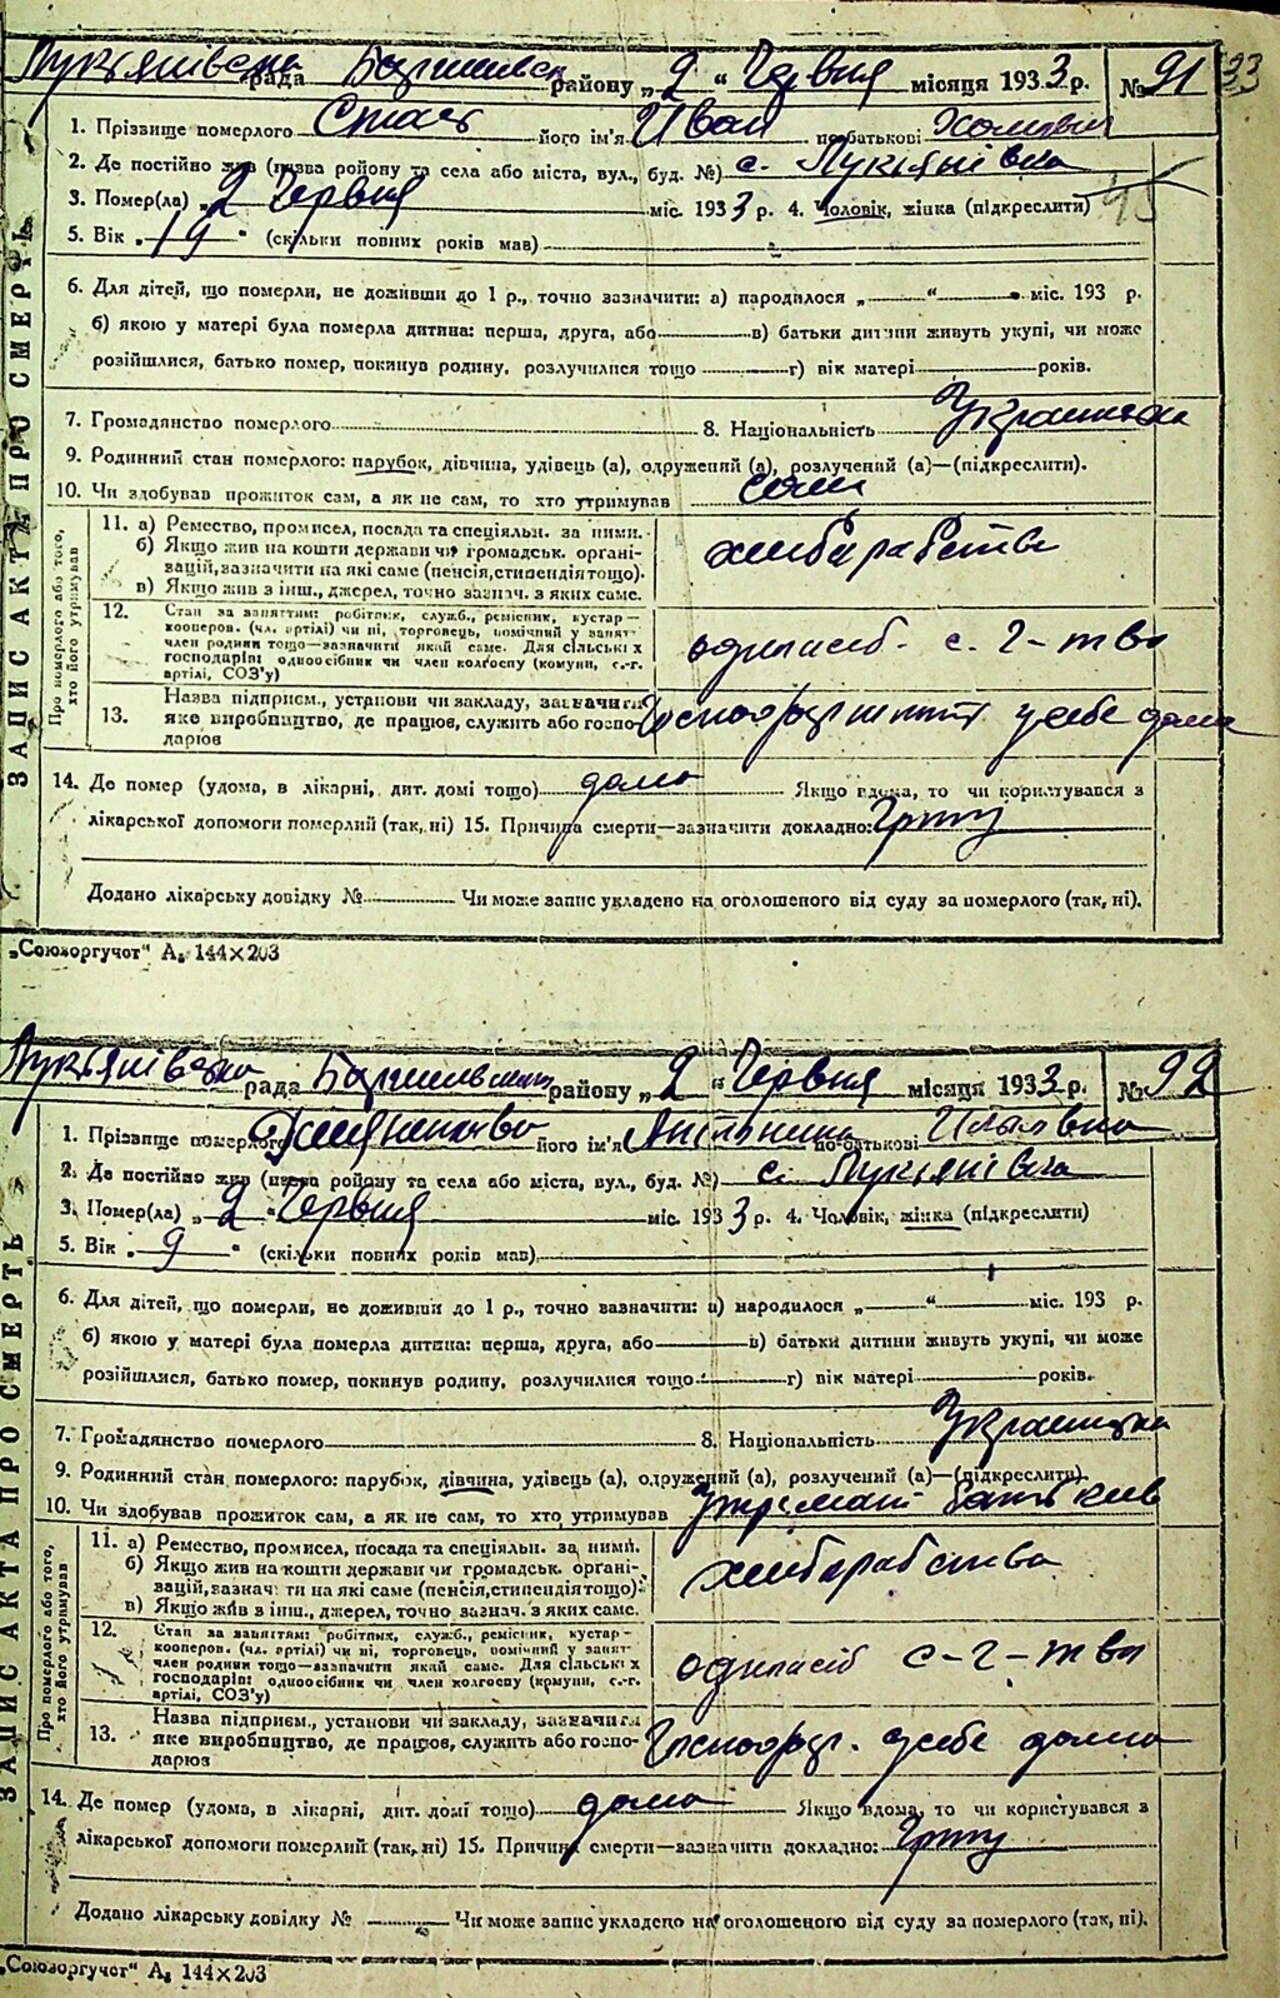 ЗАПИС АКТА ПРО СМЕРТЬ
Лукьянівська рада Баришівськ району „2" Червня місяця 1933 р. № 91 33
1. Прізвище померлого його ім'я Иван по-батькові
2. Де постійно жив (назва району та села або міста, вул., буд. №) с. Лукьянівка
3. Помер(ла) „2 Червня міс. 1933 р. 4. Чоловік, жінка (підкреслити)
5. Вік „19" (скільки повних років мав)
6. Для дітей, що померли, не доживши до 1 р., точно зазначити: а) народилося „ " міс. 193 р.
б) якою у матері була померла дитина: перша, друга, або в) батьки дитини живуть укупі, чи може
розійшлися, батько помер, покинув родину, розлучилися тощо г) вік матері років.
7. Громадянство померлого 8. Національність Украинска
9. Родинний стан померлого: парубок, дівчина, удівець (а), одружений (а), розлучений (а)—(підкреслити).
10. Чи здобував прожиток сам, а як не сам, то хто утримував сам
Про померлого або того, хто його утримував
11. а) Ремество, промисел, посада та спеціяльн. за ними.
б) Якщо жив на кошти держави чи громадськ. органі-
зацій, зазначити на які саме (пенсія, стипендія тощо).
в) Якщо жив з інш., джерел, точно зазнач. з яких саме.
хліборобство
12. Стан за заняттям: робітник, служб., ремісник, кустар—
кооперов. (чл. артілі) чи ні, торговець, помічний у занят
член родини тощо—зазначити який саме. Для сільських
господарів: одноосібник чи член колгоспу (комуни, с.-г.
артілі, СОЗ'у)
одноосіб. с. г-тво
13. Назва підприєм., установи чи закладу, зазначити
яке виробництво, де працює, служить або госпо-
дарює
у себе дома
14. Де помер (удома, в лікарні, дит. домі тощо) дома Якщо вдома, то чи користувався з
лікарської допомоги померлий (так, ні) 15. Причина смерти—зазначити докладно: Грип
Додано лікарську довідку № Чи може запис укладено на оголошеного від суду за померлого (так, ні).
„Союзоргучот" А₅ 144×203
ЗАПИС АКТА ПРО СМЕРТЬ
Лукьянівська рада Баришівськ району „2" Червня місяця 1933 р. № 92
1. Прізвище померлого його ім'я Антонина по-батькові
2. Де постійно жив (назва району та села або міста, вул., буд. №) с. Лукьянівка
3. Помер(ла) „2" Червня міс. 1933 р. 4. Чоловік, жінка (підкреслити)
5. Вік „9" (скільки повних років мав)
6. Для дітей, що померли, не доживши до 1 р., точно зазначити: а) народилося „ " міс. 193 р.
б) якою у матері була померла дитина: перша, друга, або в) батьки дитини живуть укупі, чи може
розійшлися, батько помер, покинув родину, розлучилися тощо г) вік матері років.
7. Громадянство померлого 8. Національність Украинска
9. Родинний стан померлого: парубок, дівчина, удівець (а), одружений (а), розлучений (а)—(підкреслити).
10. Чи здобував прожиток сам, а як не сам, то хто утримував
Про померлого або того, хто його утримував
11. а) Ремество, промисел, посада та спеціяльн. за ними.
б) Якщо жив на кошти держави чи громадськ. органі-
зацій, зазначити на які саме (пенсія, стипендія тощо).
в) Якщо жив з інш., джерел, точно зазнач. з яких саме.
хліборобство
12. Стан за заняттям: робітник, служб., ремісник, кустар—
кооперов. (чл. артілі) чи ні, торговець, помічний у занят
член родини тощо—зазначити який саме. Для сільських
господарів: одноосібник чи член колгоспу (комуни, с.-г.
артілі, СОЗ'у)
одноосіб с-г-тво
13. Назва підприєм., установи чи закладу, зазначити
яке виробництво, де працює, служить або госпо-
дарює
у себе дома
14. Де помер (удома, в лікарні, дит. домі тощо) дома Якщо вдома, то чи користувався з
лікарської допомоги померлий (так, ні) 15. Причина смерти—зазначити докладно: Грип
Додано лікарську довідку № Чи може запис укладено на оголошеного від суду за померлого (так, ні).
„Союзоргучот" А₅ 144×203